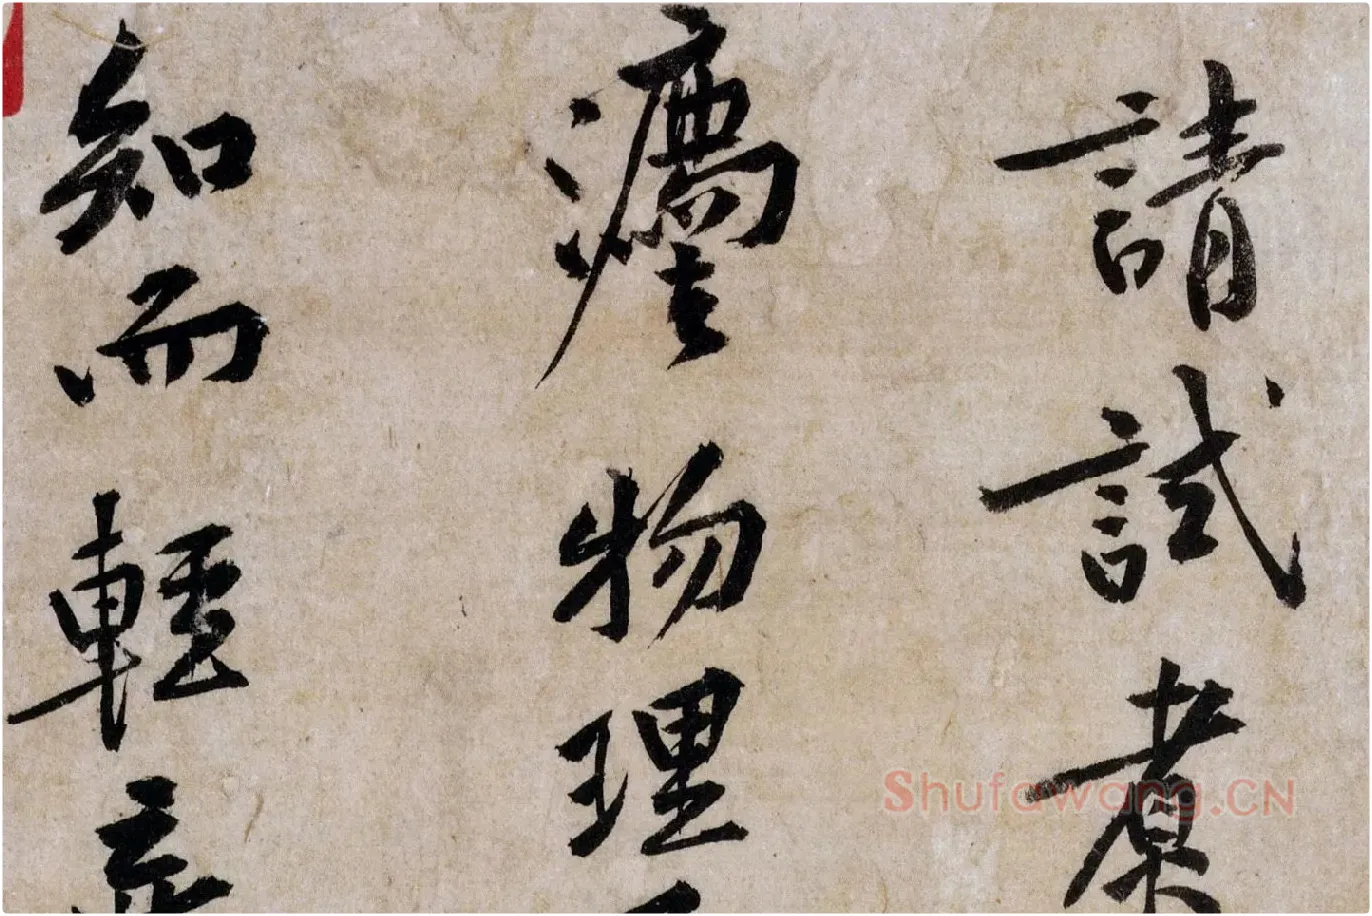 請試
灋物理
知而輕
Shufawang.CN